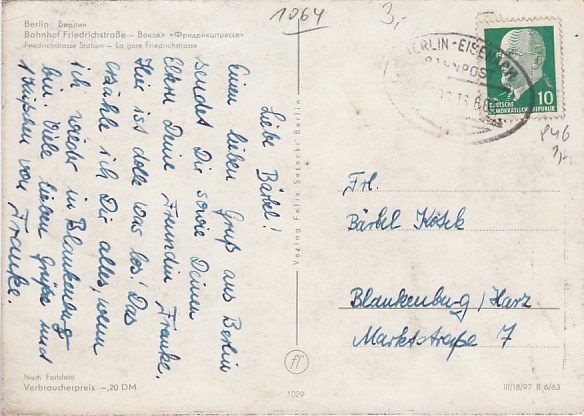 Berlin Берлин
Bahnhof Friedrichstraße – Вокзал «Фридрихштрассе»
Friedrichstrasse Station – La gare Friedrichstrasse
1064
3,-
BERLIN-EISENACH
BAHNPOST
DEUTSCHE
DEMOKRATISCHE REPUBLIK
10
P46
Liebe Bärbel!
Einen lieben Gruß aus Berlin
sendet Dir sowie Deinen
Eltern Deine Freundin Frauke.
Hier ist dolle was los! Das
erzähle ich Dir alles, wenn
ich wieder in Blankenburg
bin. Viele liebe Grüße und
1 Küßchen von
Frauke.
Verlag Felix Setecki Berlin
Frl.
Bärbel
Blankenburg/Harz
Marktstraße 7
Nach Farbfoto
Verbraucherpreis –,20 DM
1029
III/18/97 B 6/63